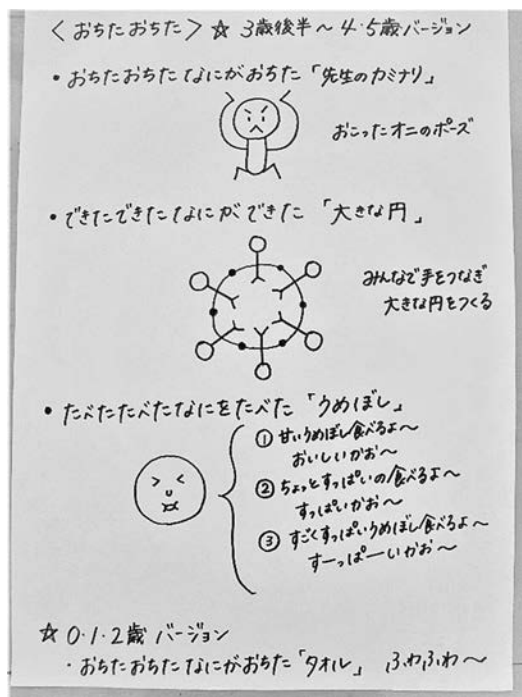 〈おちたおちた〉☆ 3歳後半～4・5歳バージョン
・おちたおちたなにがおちた「先生のカミナリ」
おこったオニのポーズ
・できたできたなにができた「大きな円」
みんなで手をつなぎ
大きな円をつくる
・たべたたべたなにをたべた「うめぼし」
① 甘いうめぼし食べるよ～
おいしいかお～
② ちょっとすっぱいの食べるよ～
すっぱいかお～
③ すごくすっぱいうめぼし食べるよ～
すーっぱーいかお～
☆ 0・1・2歳 バージョン
・おちたおちたなにがおちた「タオル」 ふわふわ～